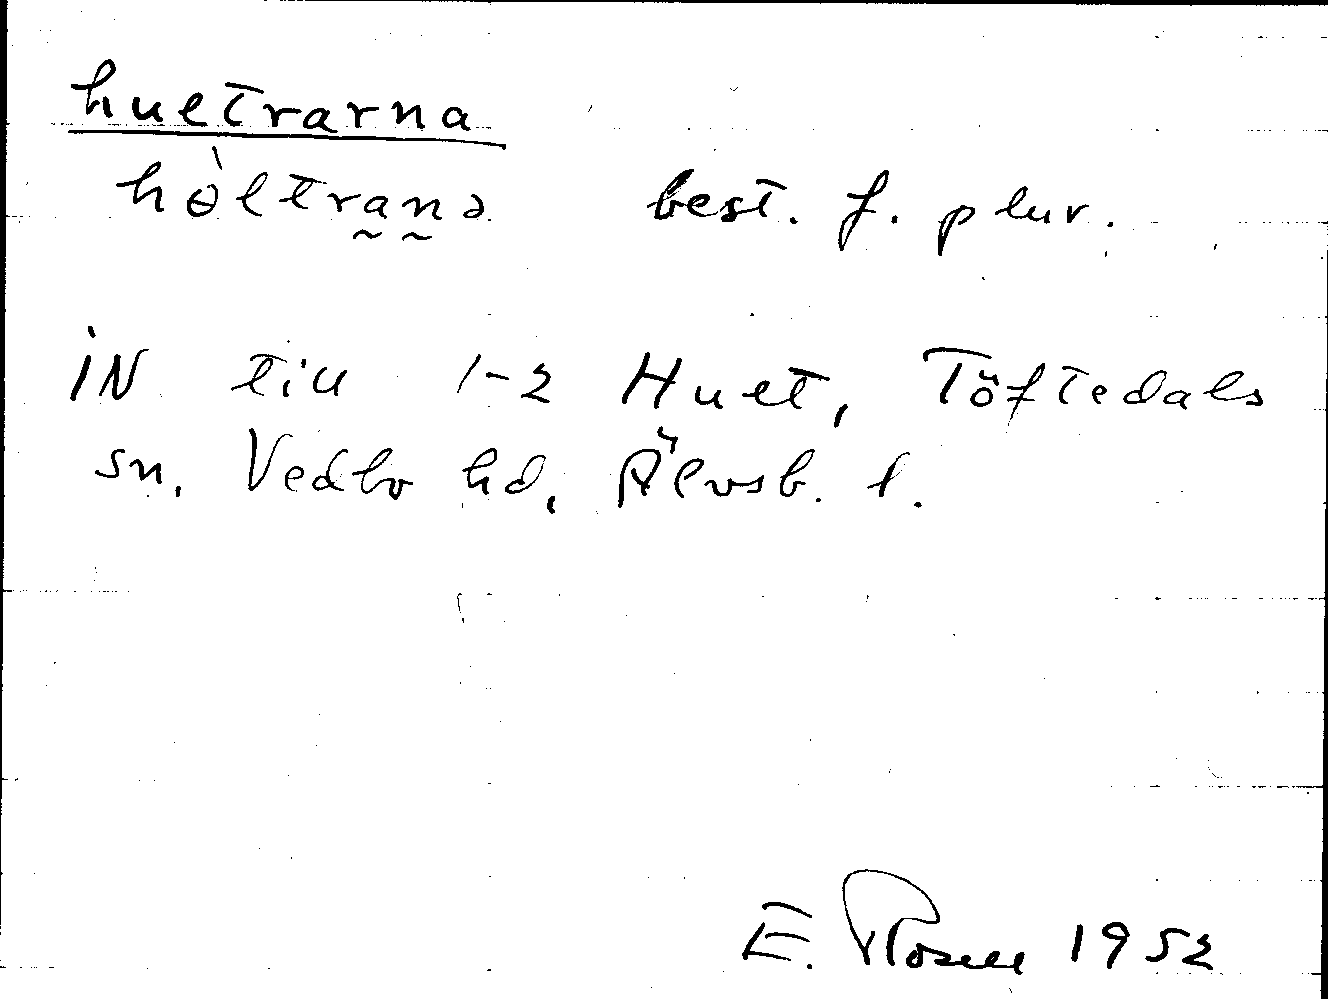 hultrarna
hòltrana best. f. plur.
IN till 1-2 Hult, Töftedals
sn. Vedbo hd, Älvsb. l.
E. Rosell 1952